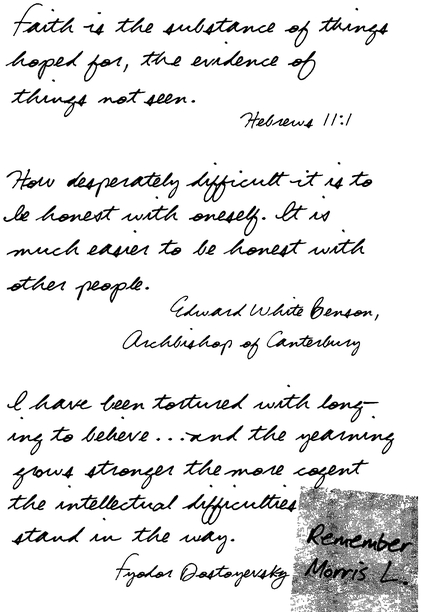 Faith is the substance of things
hoped for, the evidence of
things not seen.
Hebrews 11:1
How desperately difficult it is to
be honest with oneself. It is
much easier to be honest with
other people.
Edward White Benson,
Archbishop of Canterbury
I have been tortured with long-
ing to believe ... and the yearning
grows stronger the more cogent
the intellectual difficulties
stand in the way.
Fyodor Dostoyevsky
Remember
Morris L.